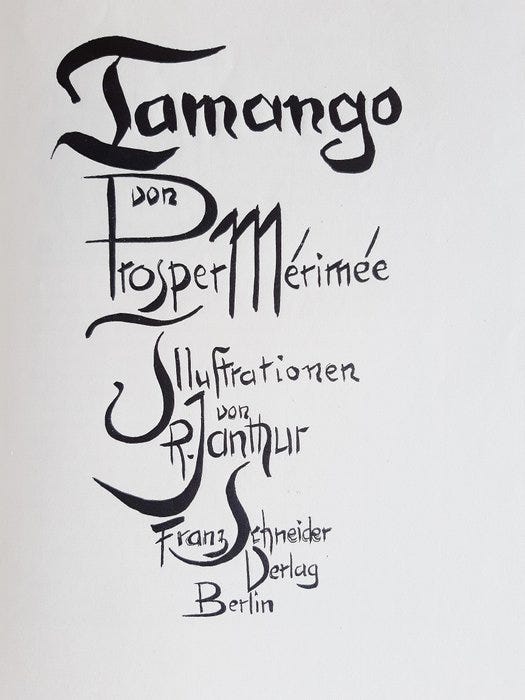 Tamango
von
Prosper Mérimée
Illustrationen
von
R. Janthur
Franz Schneider
Verlag
Berlin